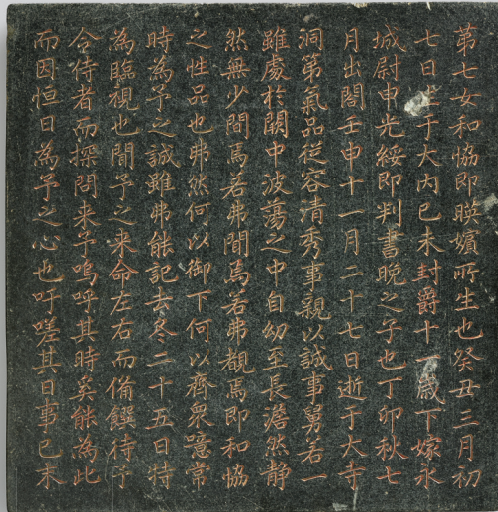 第七女和協即暎嬪所生也癸丑三月初
七日生于大內己未封爵十一歲下嫁永
城尉申光綏即判書晩之子也丁卯秋七
月出閤壬申十一月二十七日逝于大寺
洞第氣品從容清秀事親以誠事舅若一
雖處於閧中波蕩之中自幼至長澹然靜
然無少間焉若弗聞焉若弗覩焉即和協
之性品也弗然何以御下何以齊衆噫常
時為予之誠雖弗能記去冬二十五日特
為臨視也聞予之来命左右而備饌待予
令侍者而探問来乎嗚呼其時奚能為此
而因恒日為予之心也吁嗟其日事已末